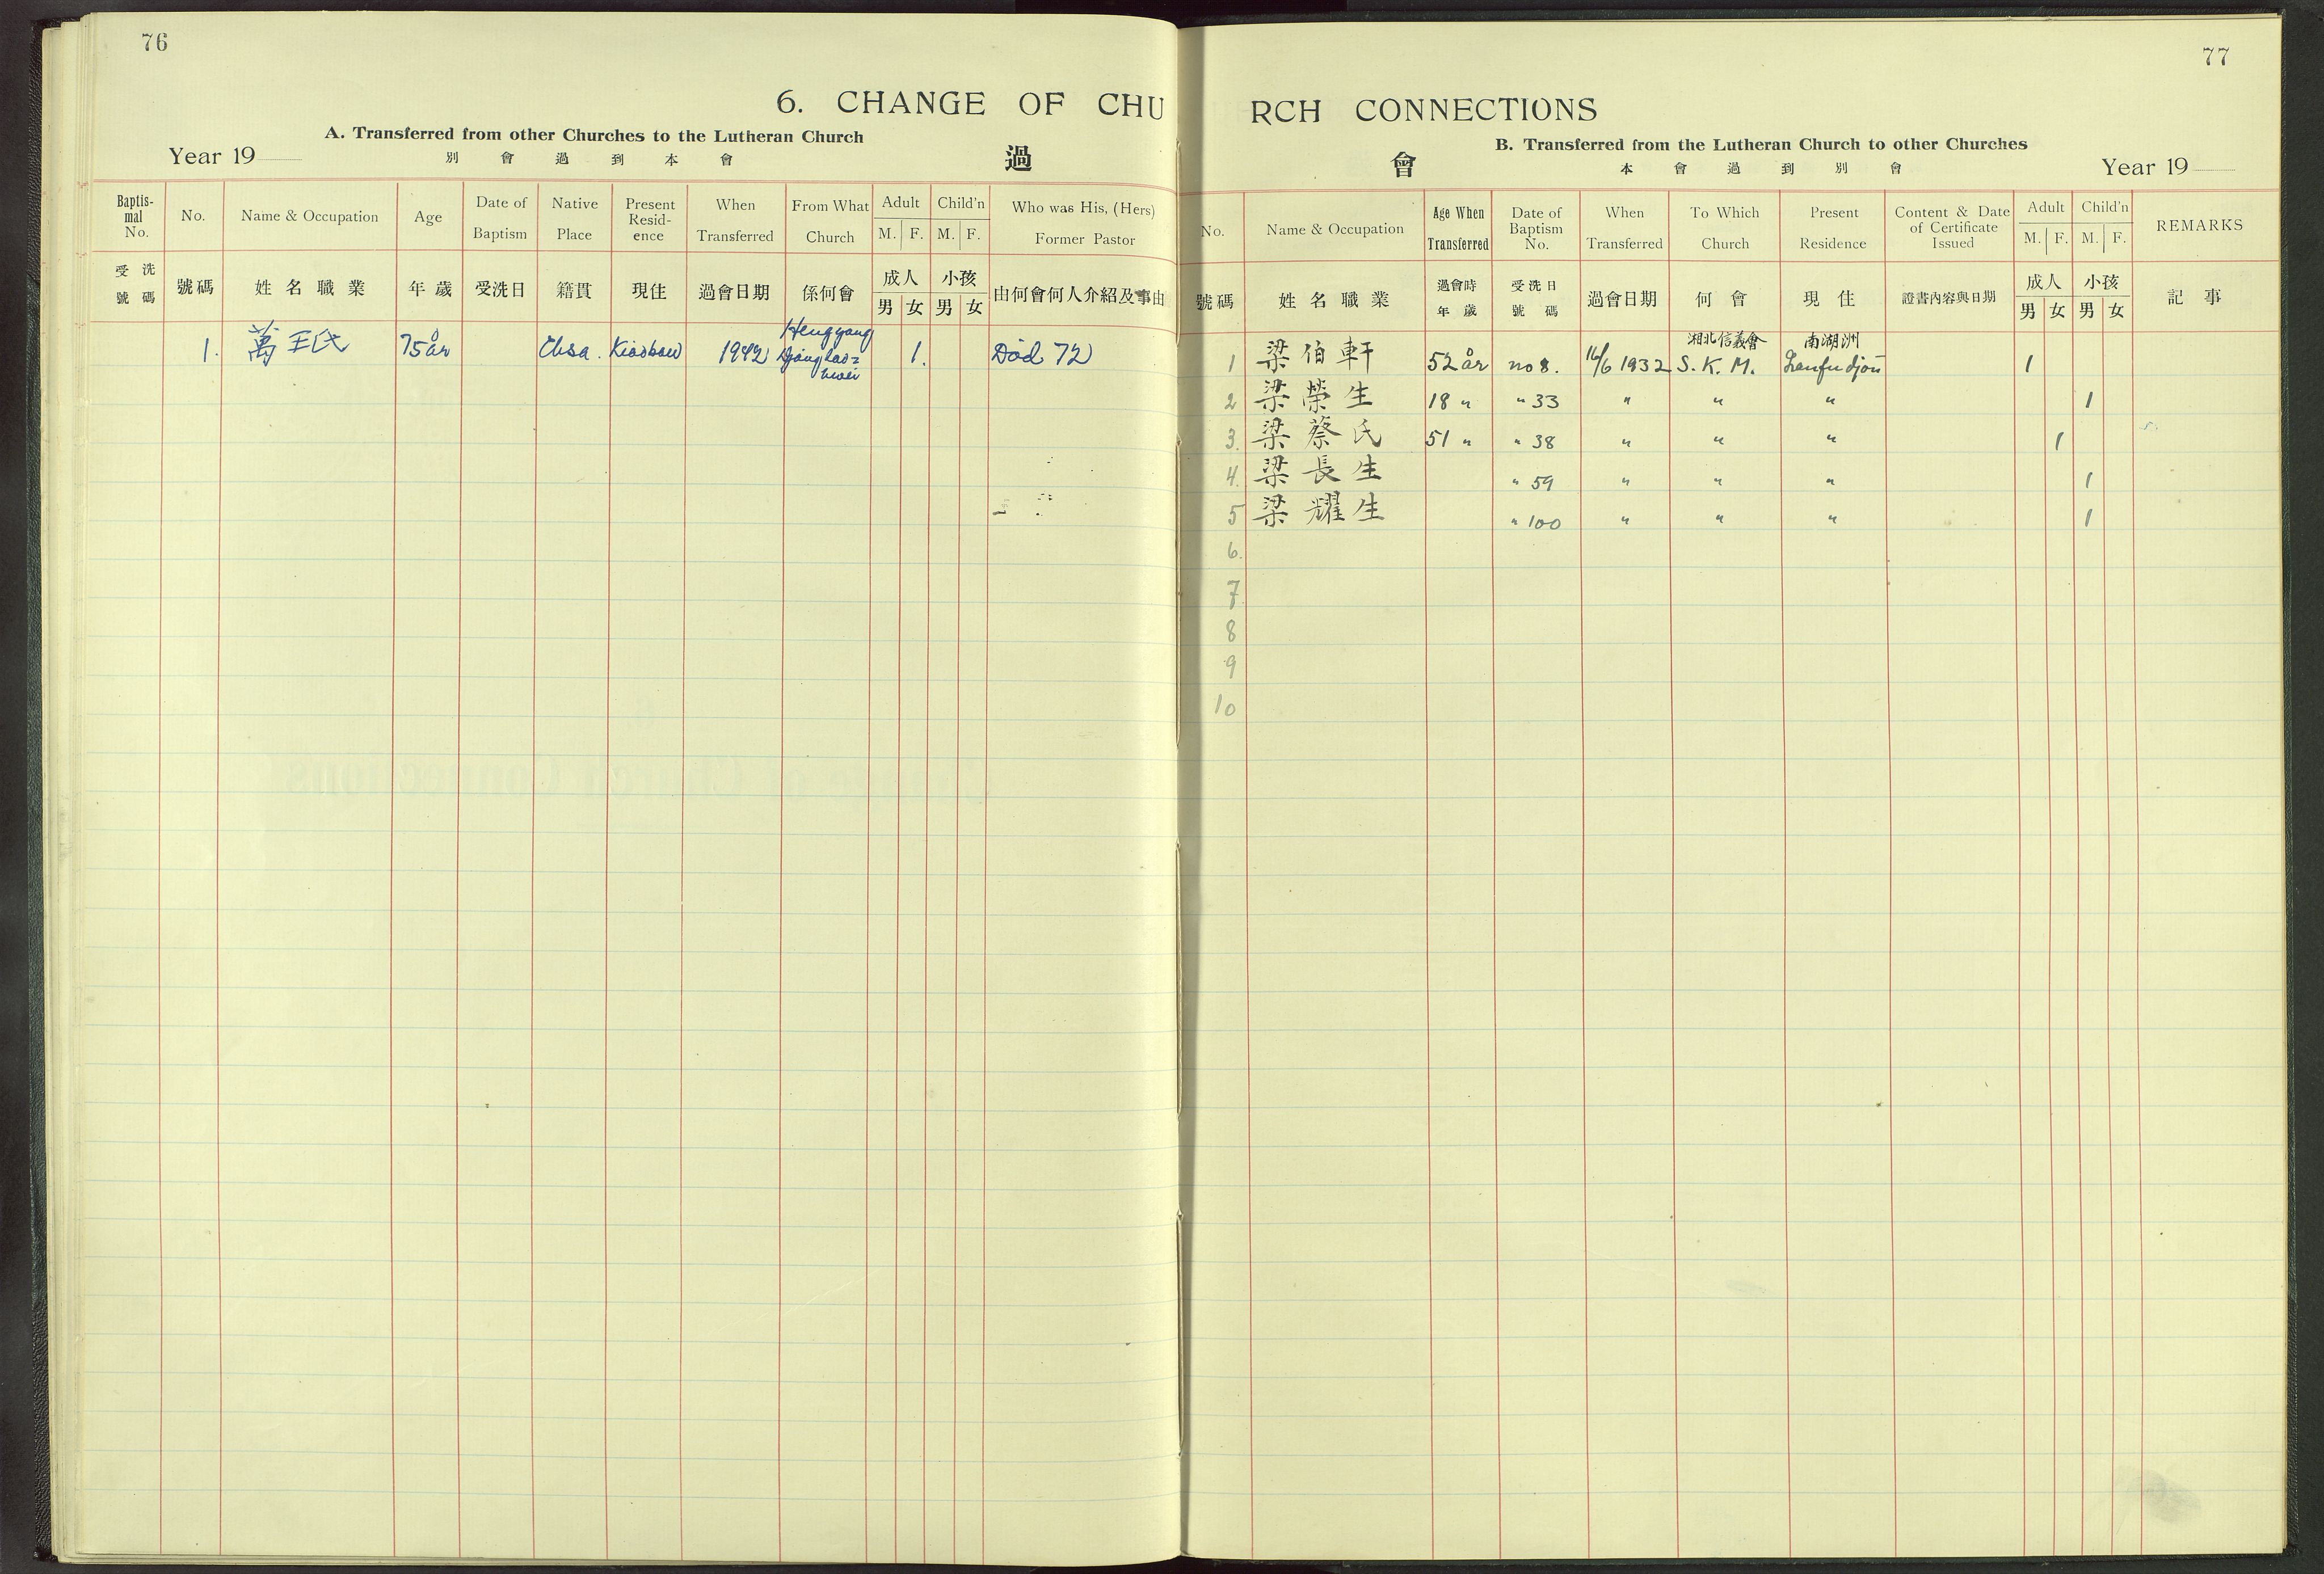 76
6. CHANGE OF CHU
A. Transferred from other Churches to the Lutheran Church
Year 19
別會過到本會
過
Baptismal No. No. Name & Occupation Age Date of Baptism Native Place Present Residence When Transferred From What Church Adult M. F. Child'n M. F. Who was His, (Hers) Former Pastor
受洗號碼 號碼 姓名職業 年歲 受洗日 籍貫 現住 過會日期 係何會 成人 男 女 小孩 男 女 由何會何人介紹及事由
1. 萬王氏 75 år 1942 Hengyang 1. Död 72
77
RCH CONNECTIONS
B. Transferred from the Lutheran Church to other Churches
會
本會過到別會
Year 19
No. Name & Occupation Age When Transferred Date of Baptism No. When Transferred To Which Church Present Residence Content & Date of Certificate Issued Adult M. F. Child'n M. F. REMARKS
號碼 姓名職業 過會時年歲 受洗日號碼 過會日期 何會 現住 證書內容與日期 成人 男 女 小孩 男 女 記事
湘北信義會 南湖洲
1 梁伯軒 52 år no 8. 16/6 1932 S. K. M. 1
2 梁榮生 18 " " 33 " " " 1
3. 梁蔡氏 51 " " 38 " " " 1
4. 梁長生 " 59 " " " 1
5 梁耀生 " 100 " " " 1
6.
7
8
9
10